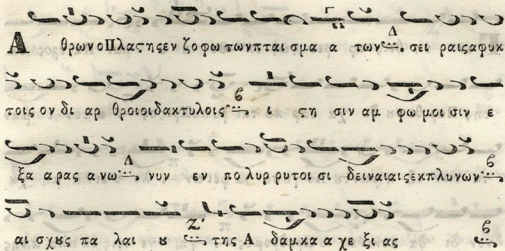 Α θρωνοΠλαςηςεν ζοφω τωνπται σμα α των Δ σει ραιςαφυκ
τοις ον δι αρ θροιοιδακτυλοις β ι τη σιν αμ φω μοι σιν ε
ξα αρας ανω Δ νυν εν πο λυρρυτοι σι δειναιαιςεκπλυνων β
αι σχȣς πα λαι ȣ Ζ της Α δαμκα α χε ξι ας β